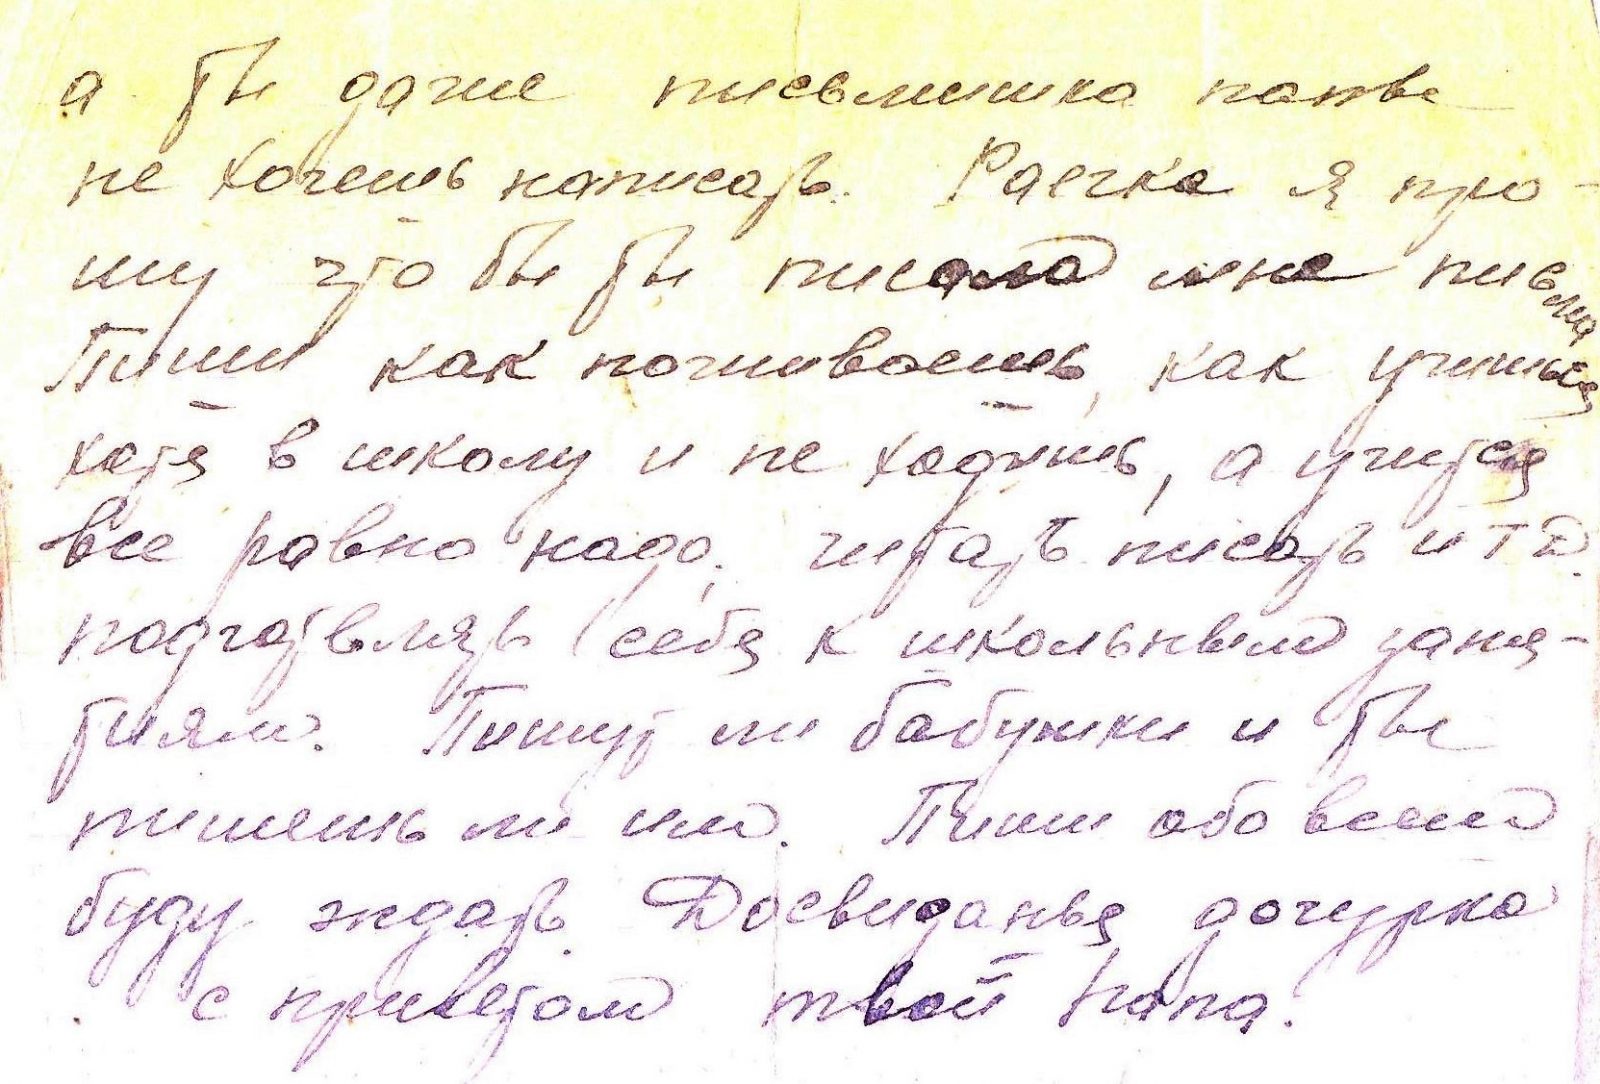 а ты даже письмишка папке
не хочешь написать. Раечка я про-
шу что бы ты писала мне письма
Пиши как поживаешь, как учишься
хотя в школу и не ходишь, а учится
все равно надо, читать писать и т д.
подготвлять себя к школьным заня-
тиям. Пишут ли бабушки и ты
пишешь ли им. Пиши обо всем
буду ждать. Досвиданья дочурка
с приветом твой папа.